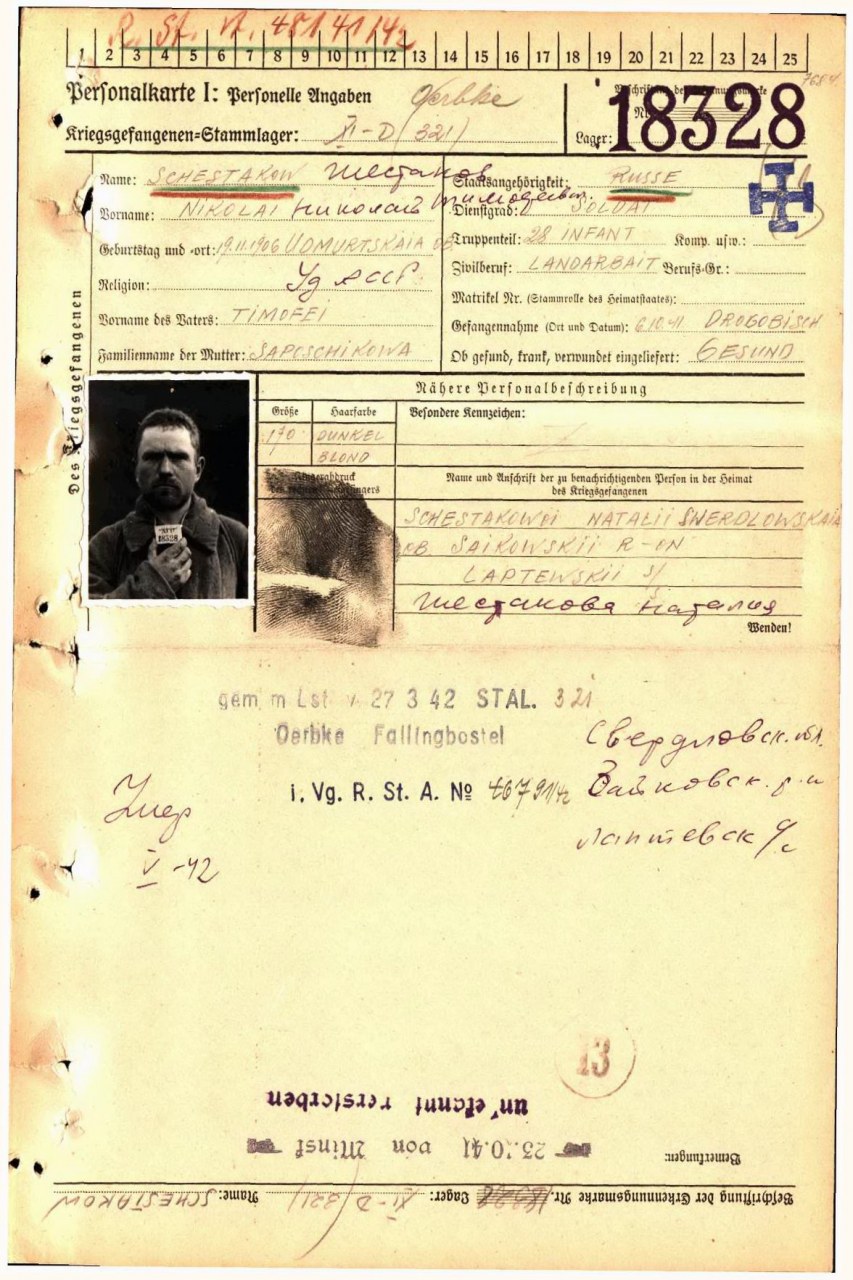 R. St. V. 48141/42
1 2 3 4 5 6 7 8 9 10 11 12 13 14 15 16 17 18 19 20 21 22 23 24 25
Personalkarte I: Personelle Angaben Oerbke
Kriegsgefangenen=Stammlager: XI-D (321)
Lager: 18328
Name: SCHESTAKOW Шестаков
Staatsangehörigkeit: RUSSE
Vorname: NIKOLAI Николай Тимофеевич
Dienstgrad: SOLDAT
Geburtstag und =ort: 19.11.1906 UDMURTSKAIA OB
Truppenteil: 28 INFANT Komp. usw.:
Zivilberuf: LANDARBAIT Berufs=Gr.:
Religion: Уд АССР
Matrikel Nr. (Stammrolle des Heimatstaates):
Vorname des Vaters: TIMOFEI
Gefangennahme (Ort und Datum): 6.10.41 DROGOBISCH
Familienname der Mutter: SAPOSCHIKOWA
Ob gesund, krank, verwundet eingeliefert: GESUND
Des Kriegsgefangenen
Nähere Personalbeschreibung
Größe Haarfarbe Besondere Kennzeichen:
170 DUNKEL
BLOND
18328
Fingerabdruck
des rechten Zeigefingers
Name und Anschrift der zu benachrichtigenden Person in der Heimat
des Kriegsgefangenen
SCHESTAKOWOI NATALII SWERDLOWSKAIA
OB SAIKOWSKII R-ON
LAPTEWSKII S/
Шестакова Наталия
Wenden!
27 3 42 STAL. 321
Oerbke Fallingbostel
Свердловск. обл.
i. Vg. R. St. A. № 46791/42
Зайковск. р-н
Лаптевск с/с
Умер
V-42
13
unbekannt verstorben
25.10.41 von Minsk
Bemerkungen:
Beschriftung der Erkennungsmarke Nr. Lager: XI-D (321) Name: SCHESTAKOW